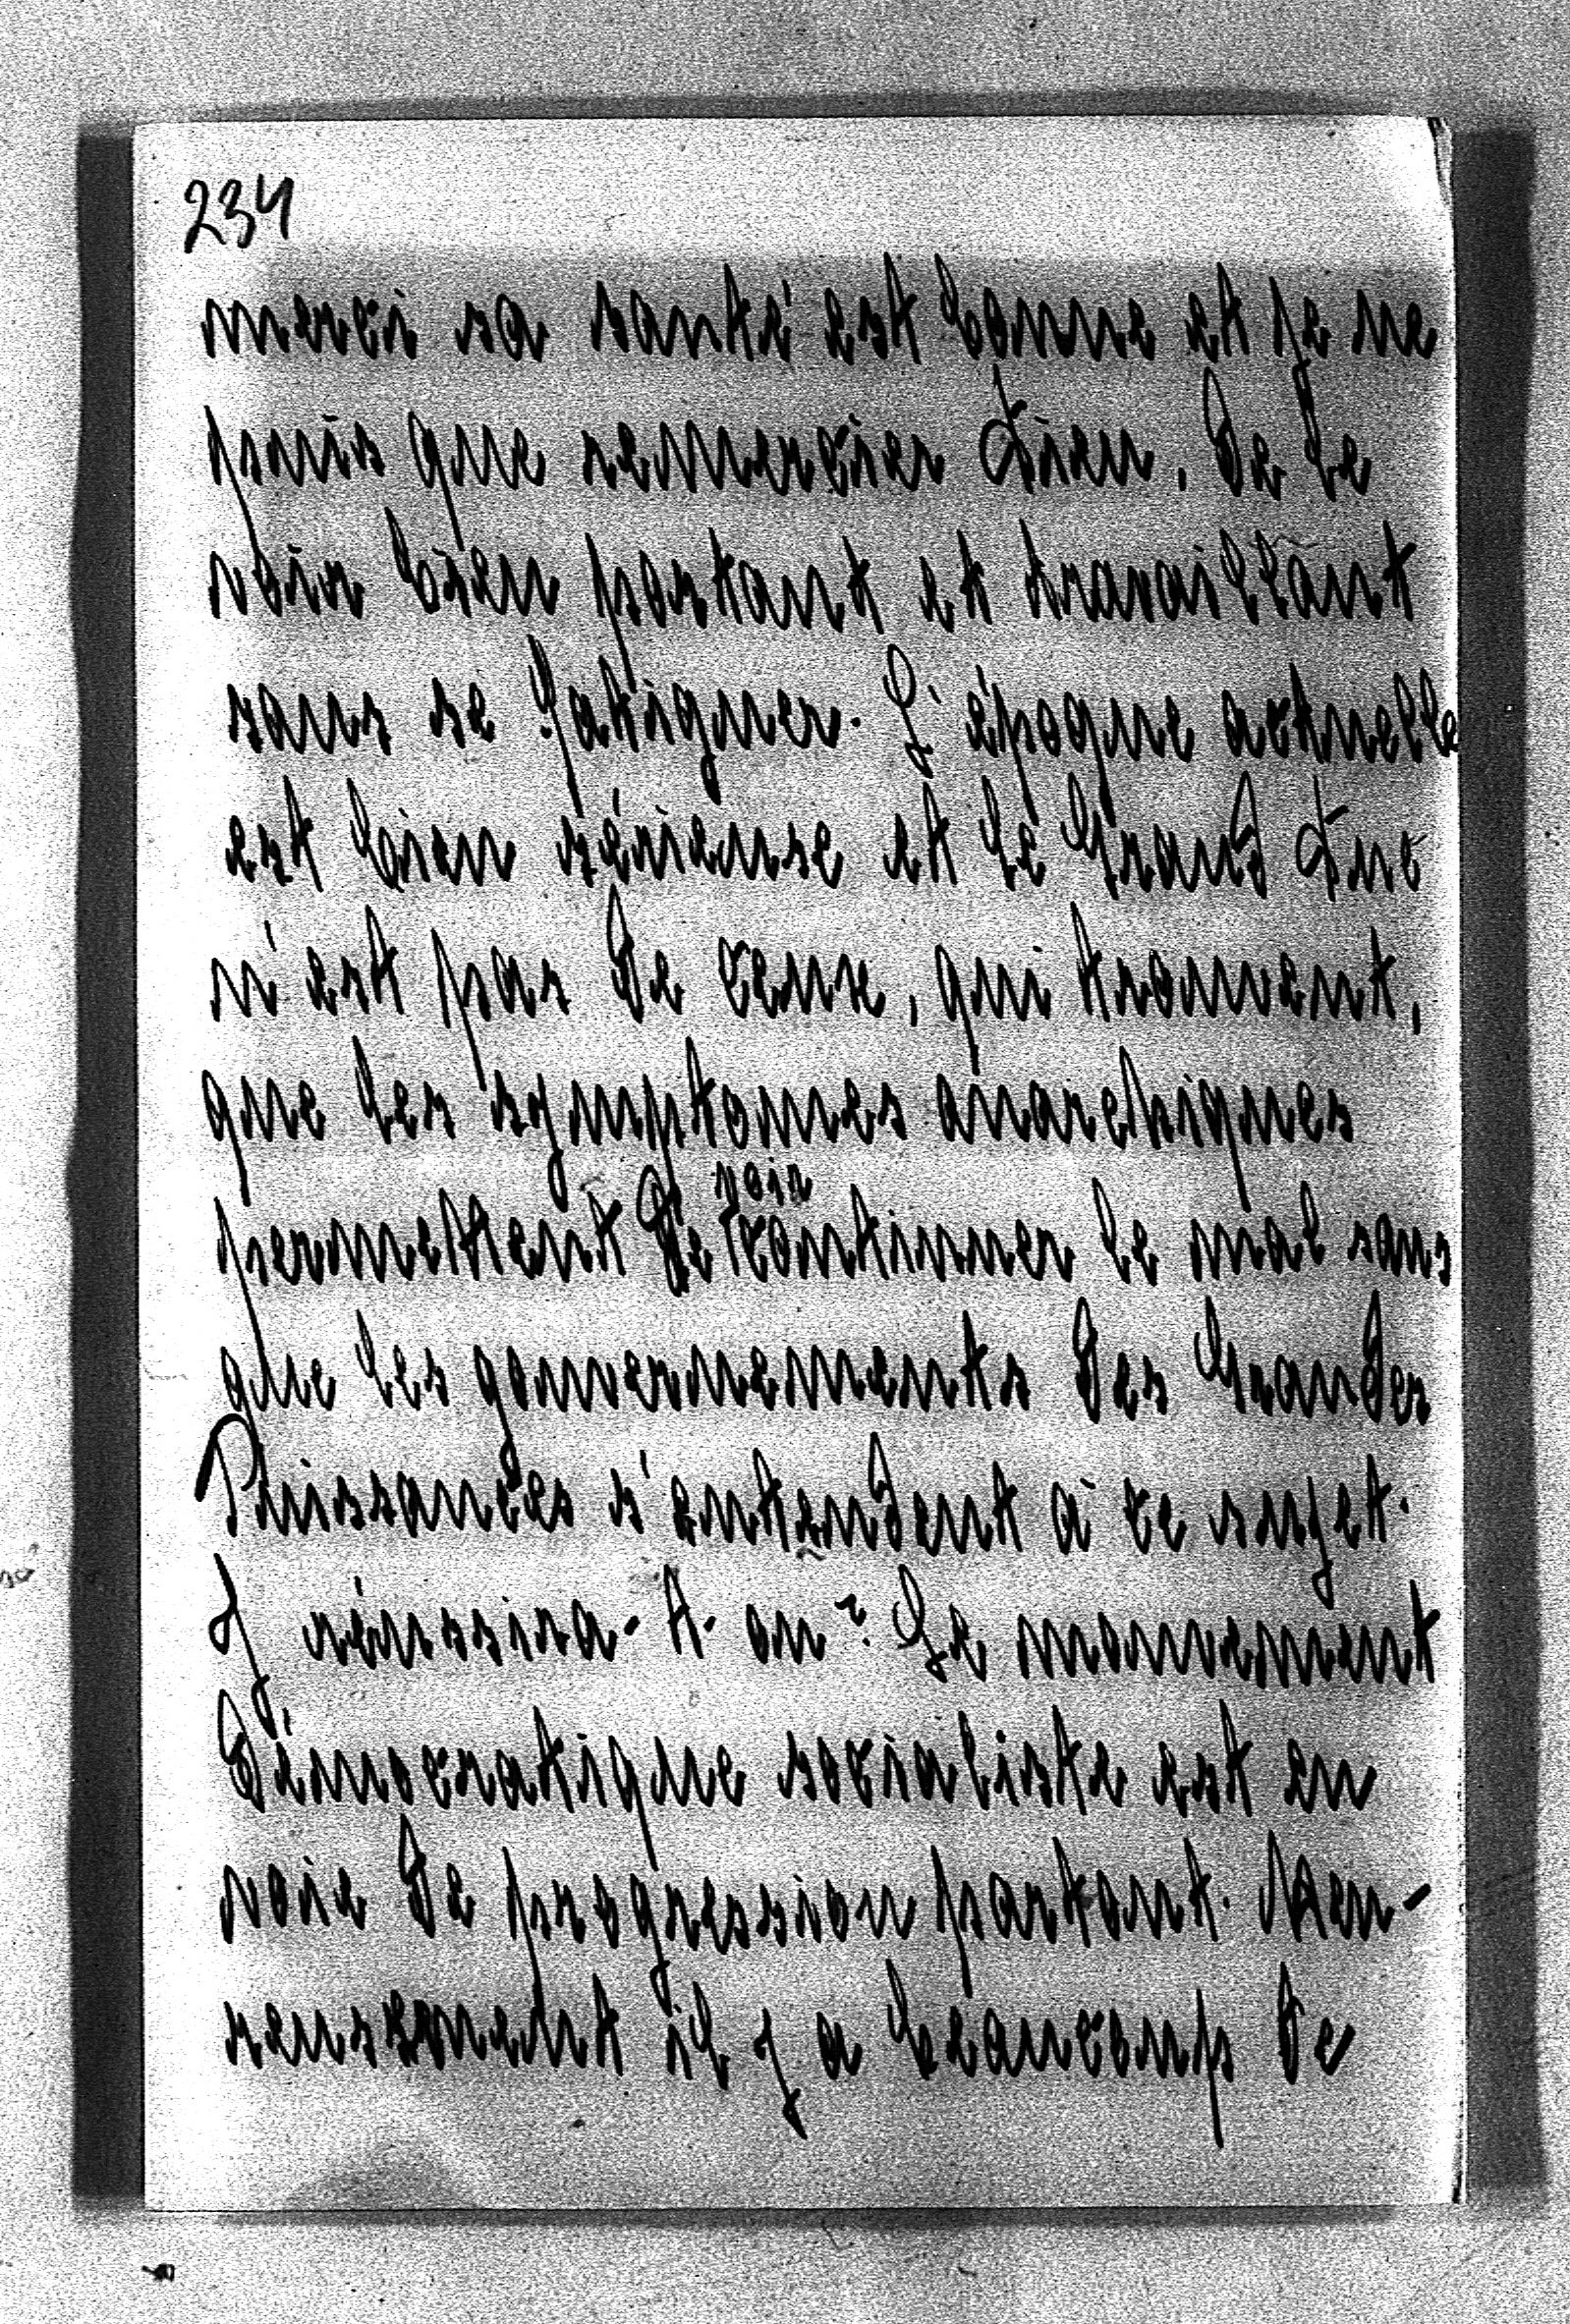 234
merci sa santé est bonne et je ne
puis que remercier Dieu, de le
voir bien portant et travaillant
sans se fatiguer. L'époque actuelle
est bien sérieuse et le Grand Duc
n'est pas de ceux, qui trouvent,
que les symptomes anarchiques
permettent de voir continuer le mal sans
que les gouvernements des Grandes
Puissances s'entendent à ce sujet.
Y réussira-t-on? Le mouvement
démocratique socialiste est en
voie de progression partout. Heu-
reusement il y a beaucoup de